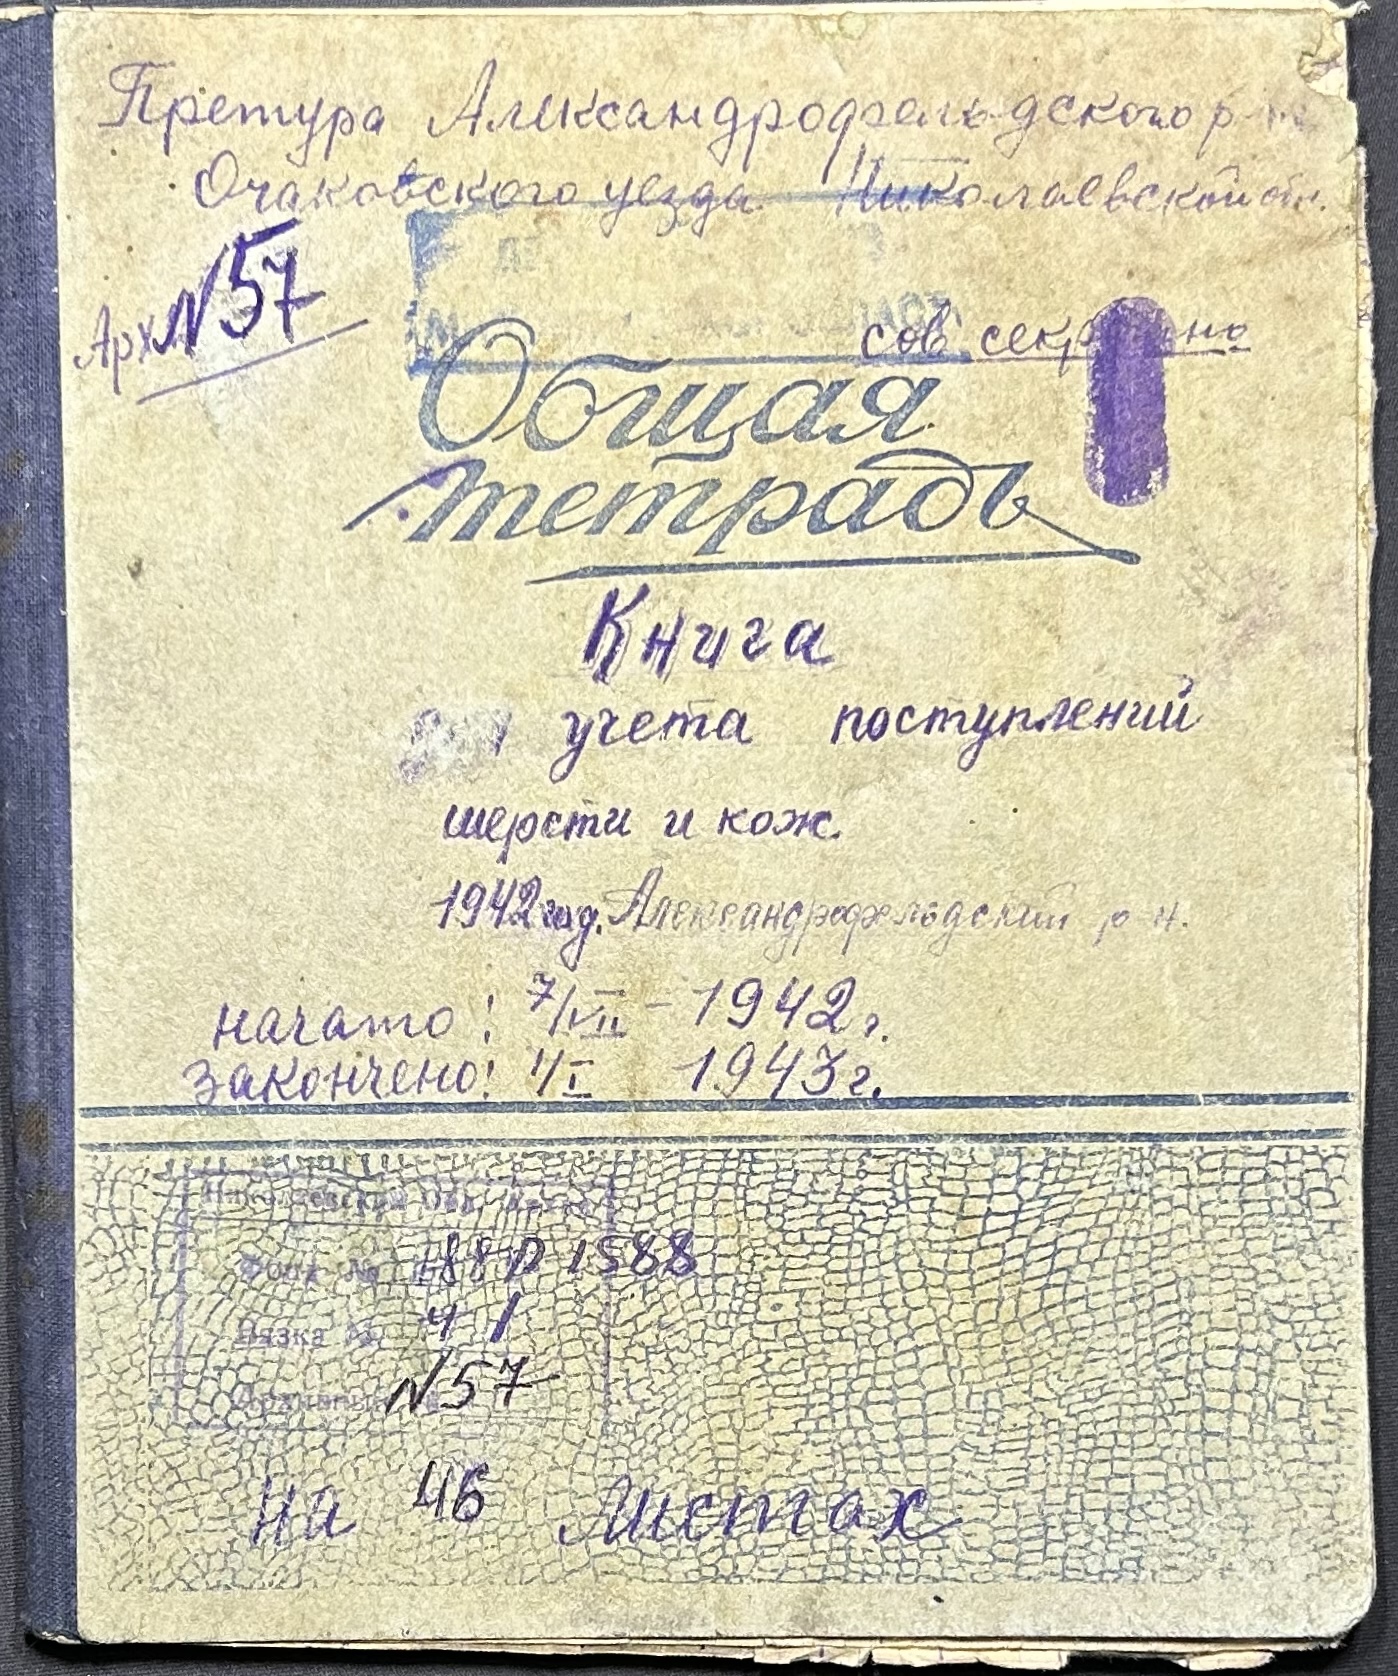 Претура Александрофельдского р-на
Очаковского уезда Николаевской обл.
Арх N57
сов секретно
Общая
тетрадь
Книга
учета поступлений
шерсти и кож.
1942 год. Александрофельдский р-н.
начато: 7/VII – 1942 г.
закончено: 4/I 1943 г.
Николаевский Обл. Архив
Фонд № 1588
Вязка №
Архивный
N57
На 46 листах